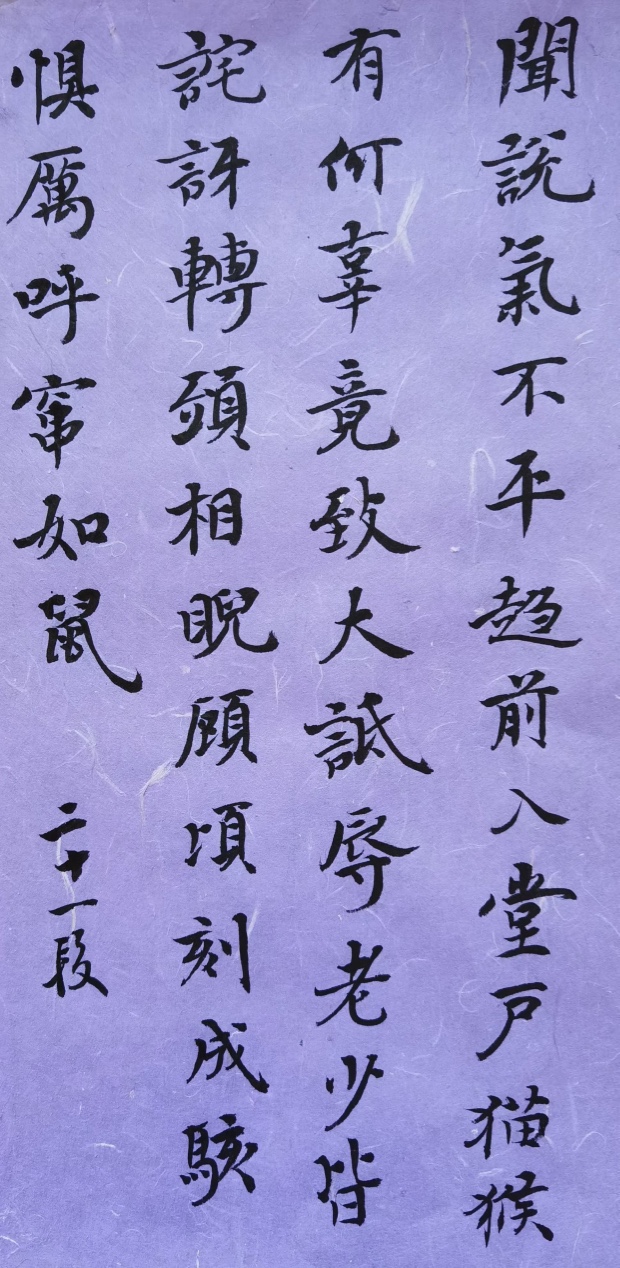 聞説氣不平趋前入堂戸猫猴
有何辜竟致大詆辱老少皆
詫訝轉頭相睨顧頃刻成駭
惧厲呼窜如鼠
二十一段